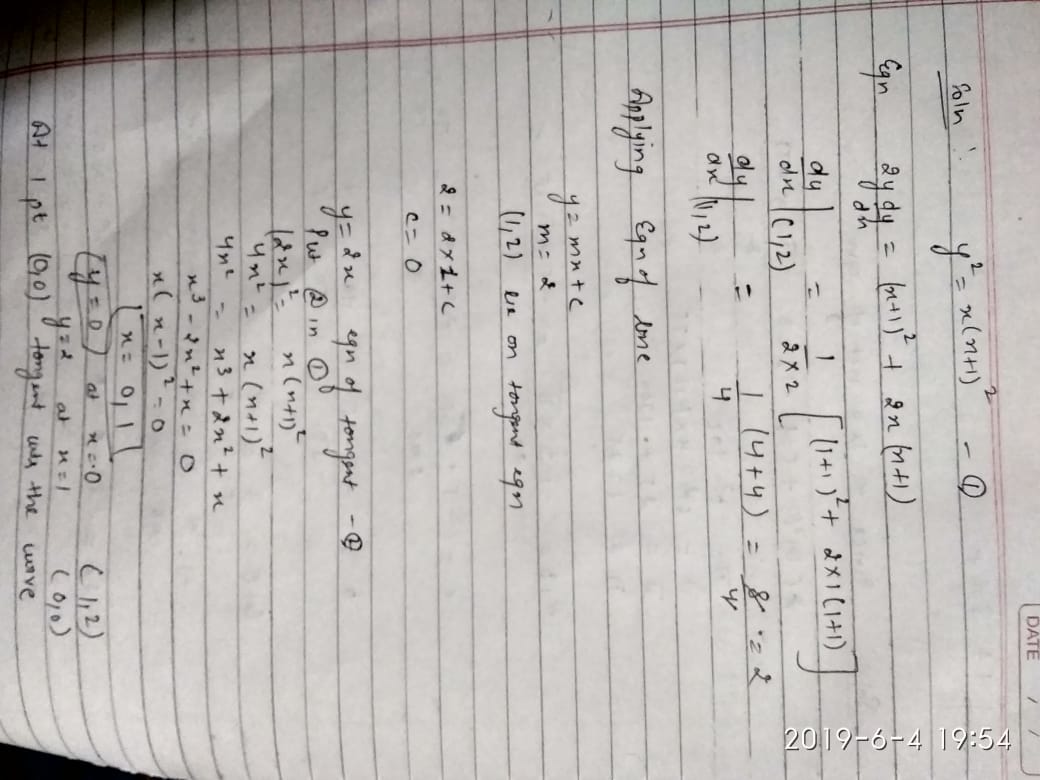 DATE / /
Soln : y² = x(x+1)² - ①
Eqn 2y dy/dx = (x+1)² + 2x(x+1)
dy/dx|(1,2) = 1/2×2 [(1+1)² + 2×1(1+1)]
dy/dx|(1,2) = 1/4 (4+4) = 8/4 = 2
Applying Eqn of line
y = mx + c
m = 2
(1,2) lie on tangent eqn
2 = 2×1 + c
c = 0
y = 2x eqn of tangent - ②
Put ② in ①
(2x)² = x(x+1)²
4x² = x(x+1)²
4x² = x³ + 2x² + x
x³ - 2x² + x = 0
x(x-1)² = 0
x = 0, 1
y = 0 at x = 0 (1,2)
y = 2 at x = 1 (0,0)
At 1 pt (0,0) tangent the curve
2019-6-4 19:54